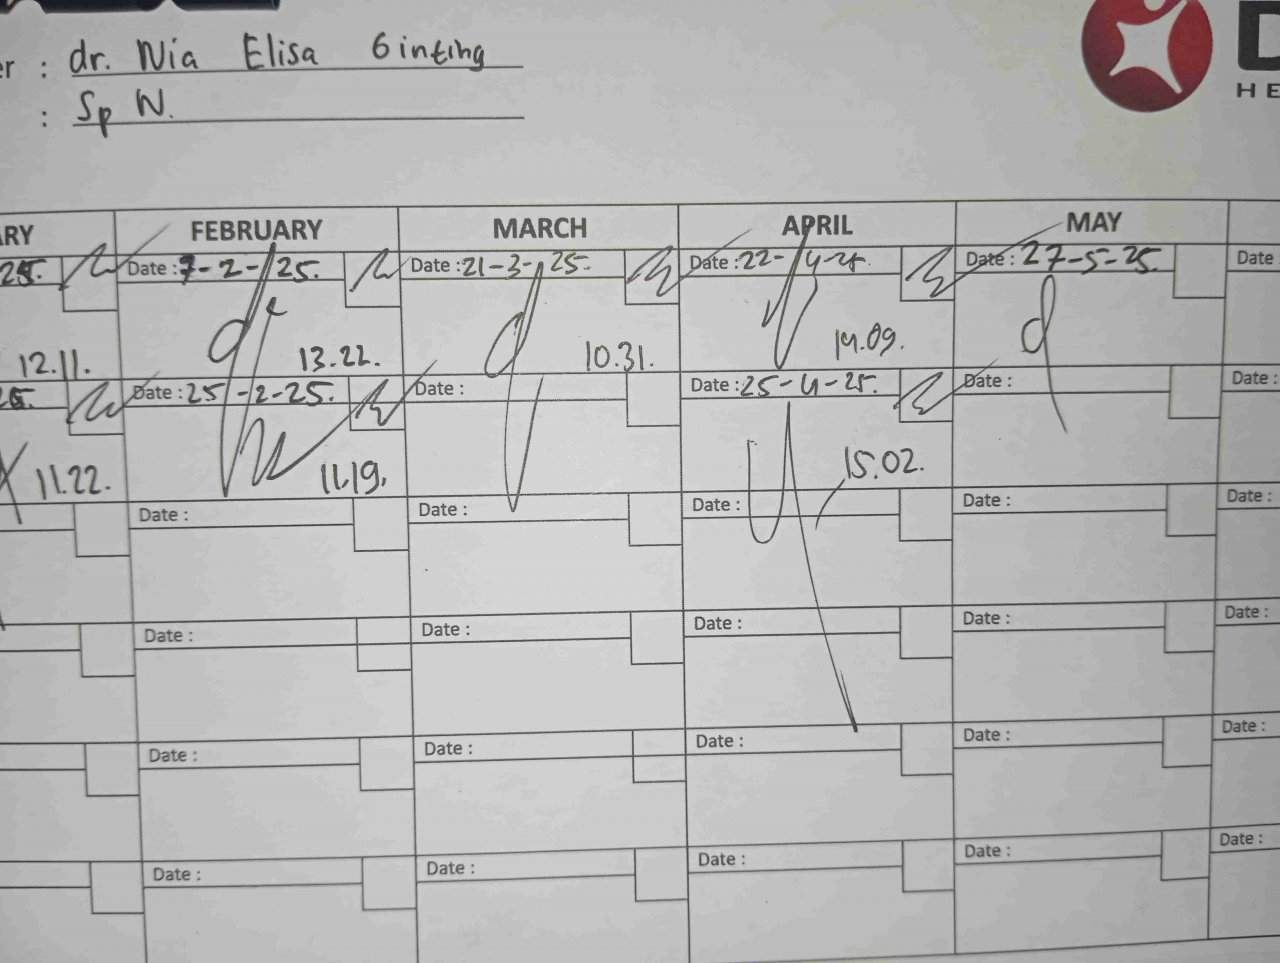 er : dr. Nia Elisa Ginting
: Sp N.
D
HE
ARY FEBRUARY MARCH APRIL MAY
25. Date : 7-2-25. Date : 21-3-25. Date : 22-4-25. Date : 27-5-25. Date
12.11. 13.22. 10.31. 14.09.
25. Date : 25-2-25. Date : Date : 25-4-25. Date : Date :
11.22. 11.19. 15.02.
Date : Date : Date : Date : Date :
Date : Date : Date : Date : Date :
Date : Date : Date : Date : Date :
Date : Date : Date : Date : Date :